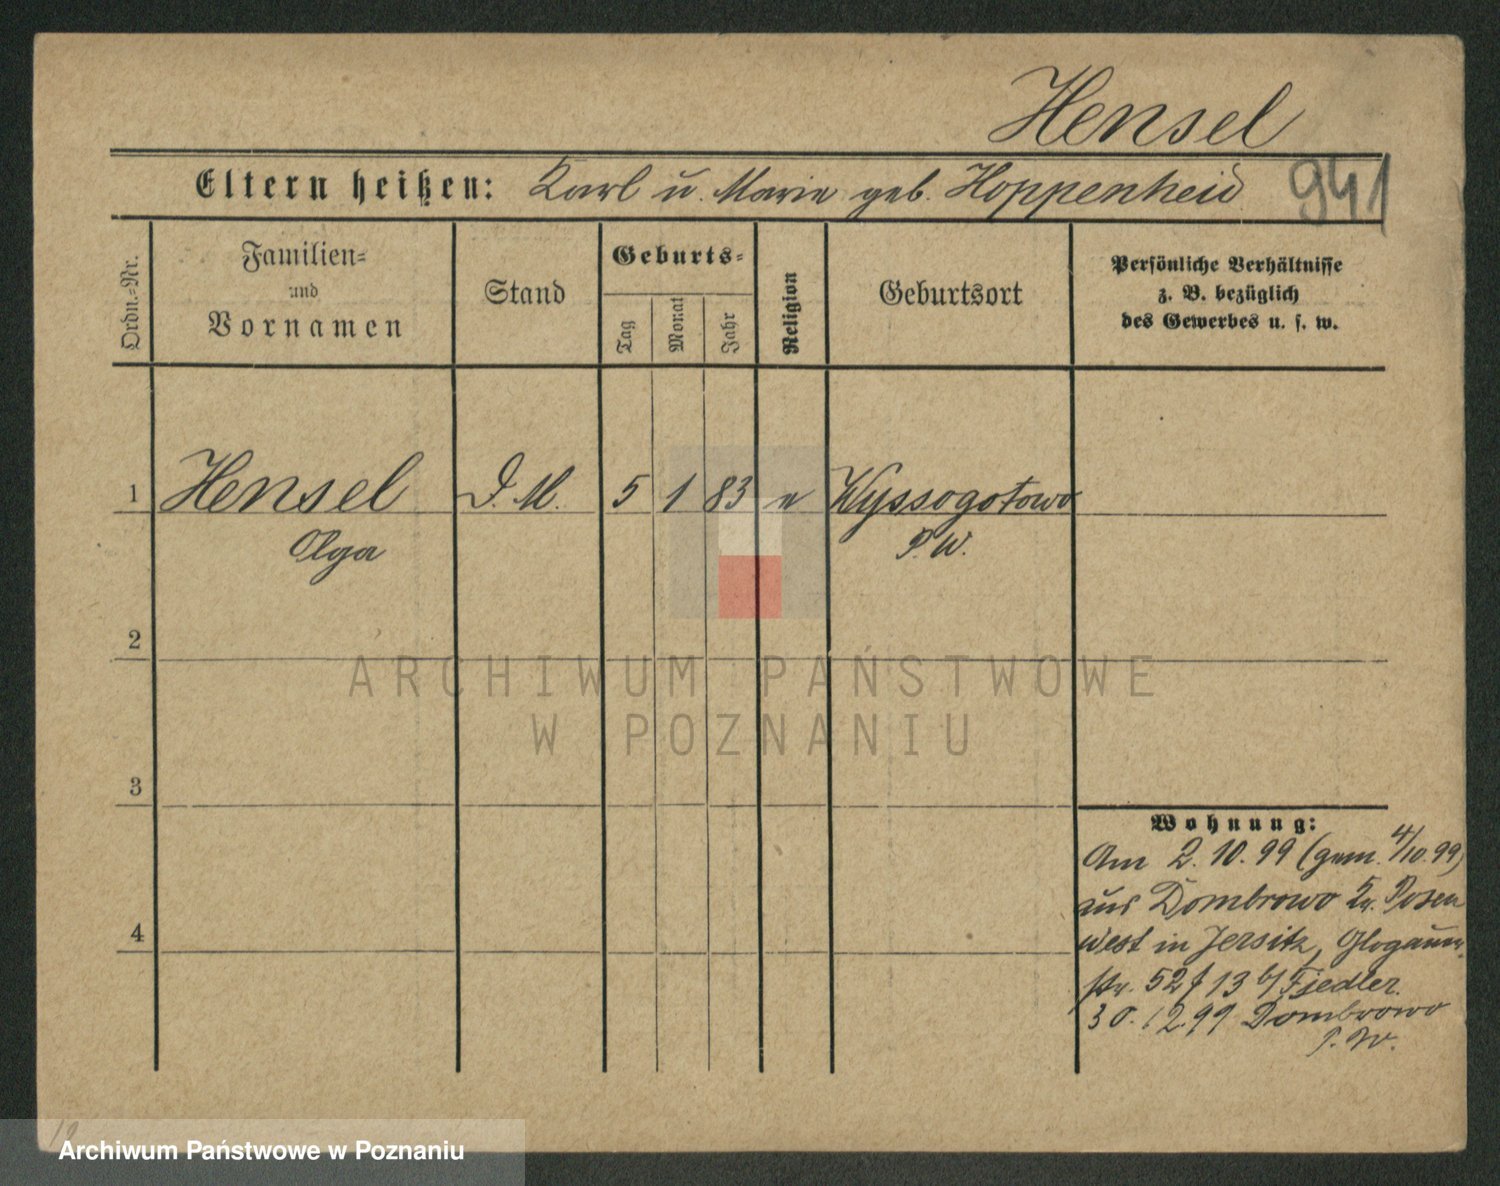 Hensel
Eltern heißen: Karl u. Marie geb. Hoppenheid
941
Ordn.-Nr.
Familien-
und
Vornamen
Stand
Geburts-
Tag
Monat
Jahr
Religion
Geburtsort
Persönliche Verhältnisse
z. B. bezüglich
des Gewerbes u. s. w.
1 Hensel D. M. 5 1 83 Wyssogotowo
Olga P. W.
2
3
4
ARCHIWUM PAŃSTWOWE
W POZNANIU
Wohnung:
Am 2.10.99 (gem. 4/10.99)
aus Dombrowo Kr. Posen
West in Jersitz, Glogauer-
str. 52 13 b/ Fiedler.
30.12.99 Dombrowo
P. W.
Archiwum Państwowe w Poznaniu